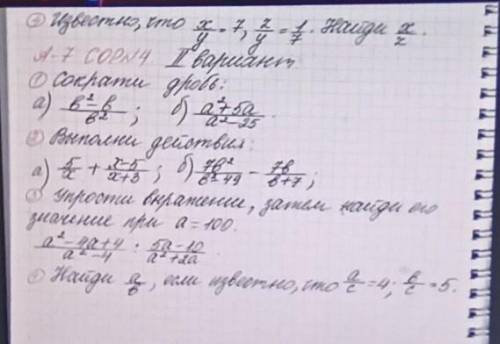 ④ Известно, что x/y = 7, z/y = 1/7. Найди x/z.
А-7 СОР№4 II вариант
① Сократи дробь:
а) (b²-b)/b²; б) (a²+5a)/(a²-25)
② Выполни действия:
а) 5/x + (x-5)/(x+3); б) 7b²/(b²-49) - 7b/(b+7);
③ Упрости выражение, затем найди его
значение при a=100.
(a²-4a+4)/(a²-4) : (5a-10)/(a²+2a)
④ Найди a/b, если известно, что a/c = 4; b/c = 5.